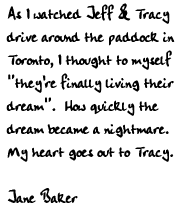 As I watched Jeff & Tracy
drive around the paddock in
Toronto, I thought to myself
"they're finally living their
dream". How quickly the
dream became a nightmare.
My heart goes out to Tracy.
Jane Baker